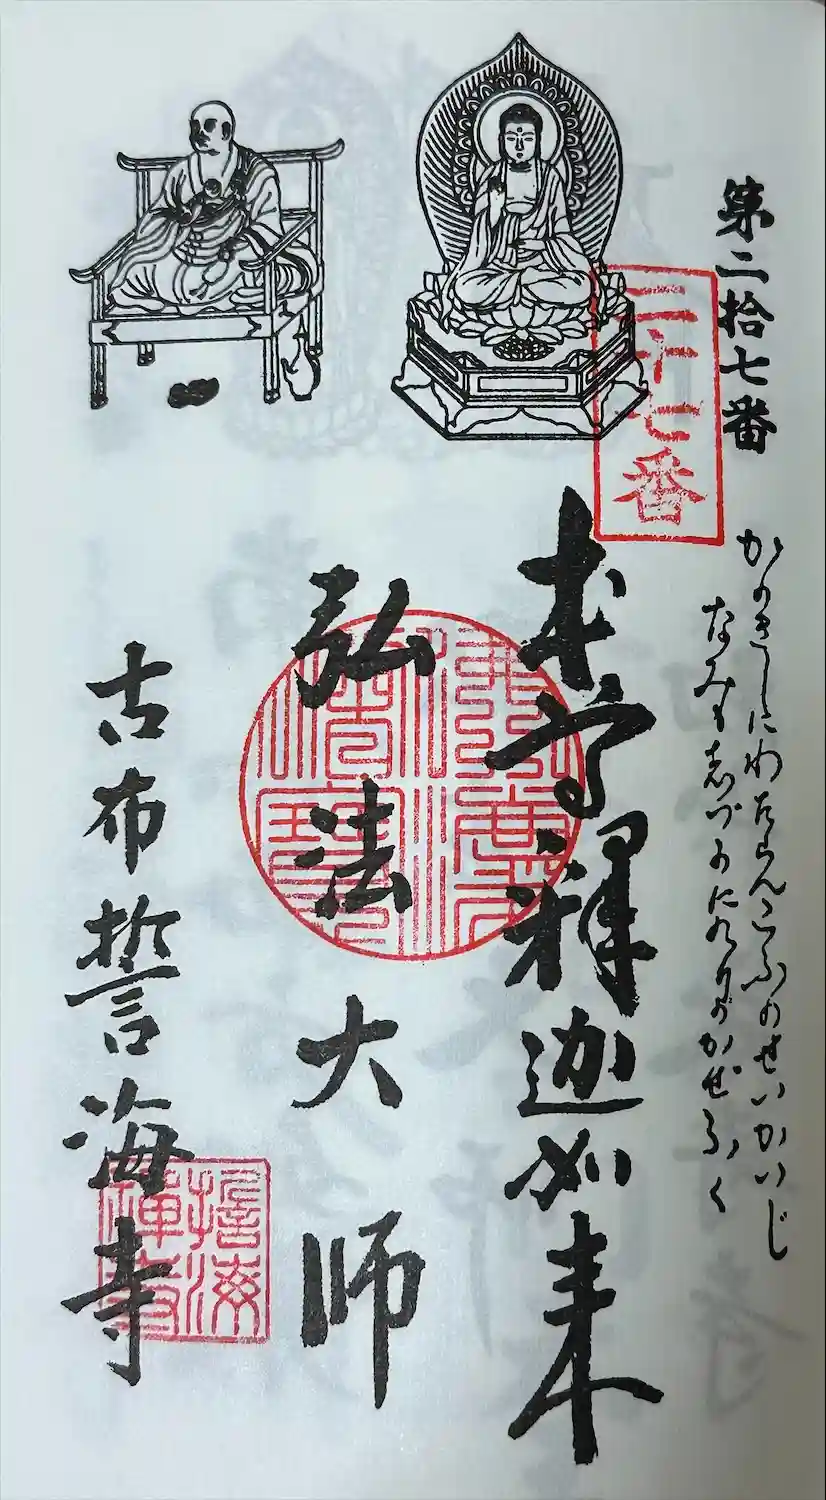 第二拾七番
二十七番
かのきしにわたらんこふのせいかいじ
なみも志づかにのりのかぜふく
本尊釋迦如来
弘法大師
古布誓海寺
誓海
禅寺